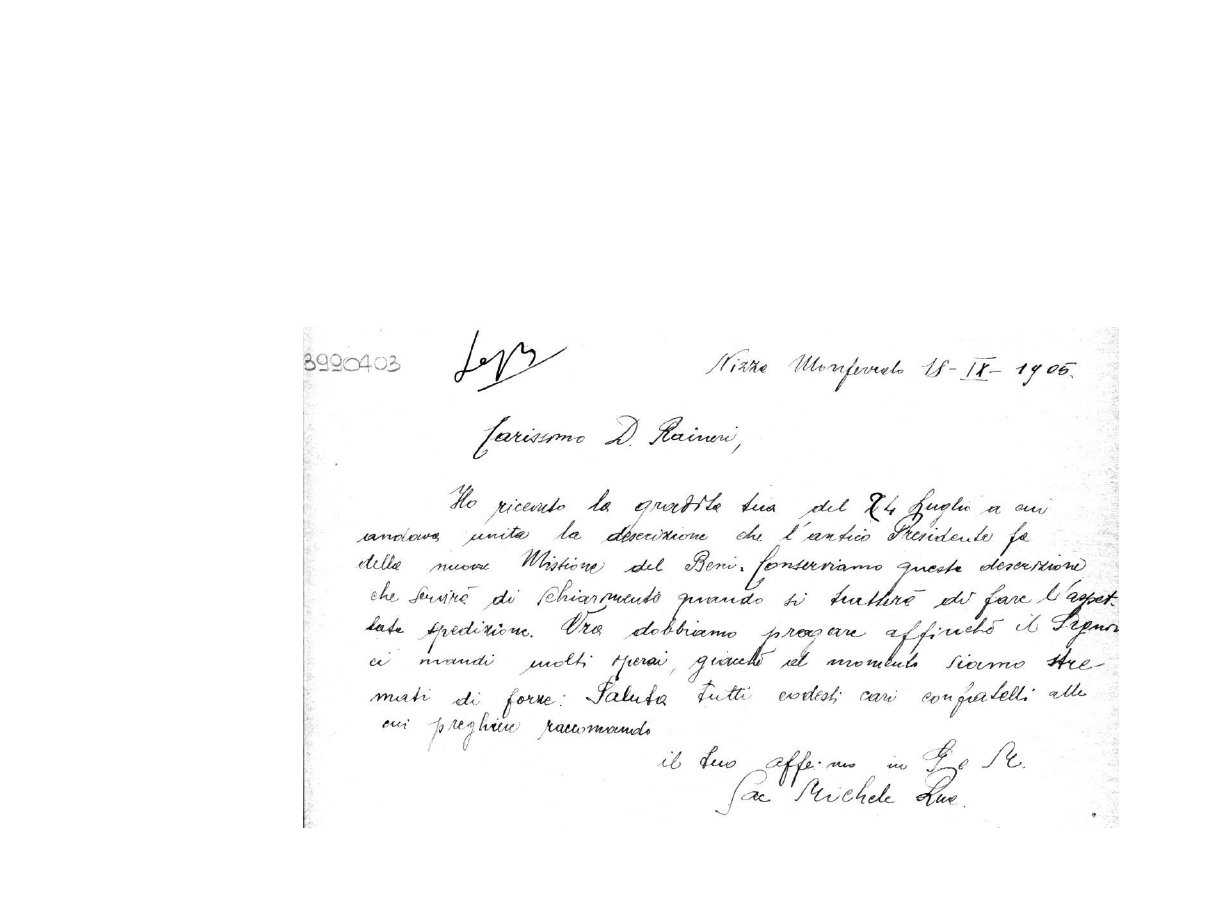 3990403
Nizza Monferrato 18-IX-1905.
Carissimo D. Raineri,
Ho ricevuto la gradita tua del 24 Luglio a cui
andava unita la descrizione che l'antico Presidente fa
della nuova Missione del Beni. Conserviamo questa descrizione
che servirà di schiarimento quando si tratterà di fare l'aspet-
tata spedizione. Ora dobbiamo pregare affinchè il Signor
ci mandi molti operai, giacchè al momento siamo stre-
mati di forze: Saluta tutti codesti cari confratelli alle
cui preghiere raccomando
il tuo affe.mo in G e M.
Sac Michele Rua.